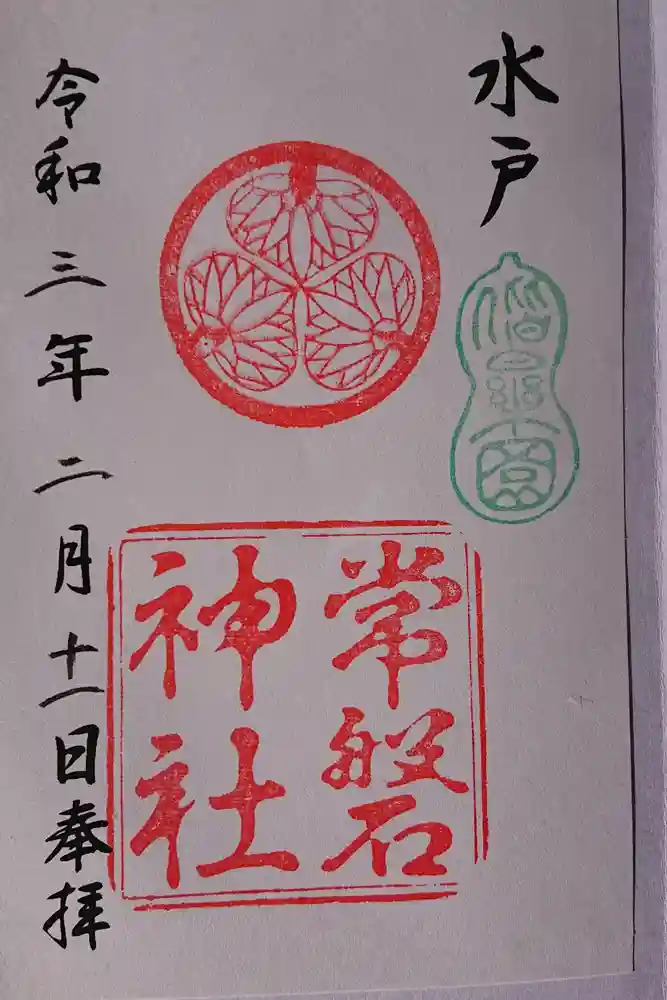 水戸
偕楽園
常磐
神社
令和三年二月十一日奉拝